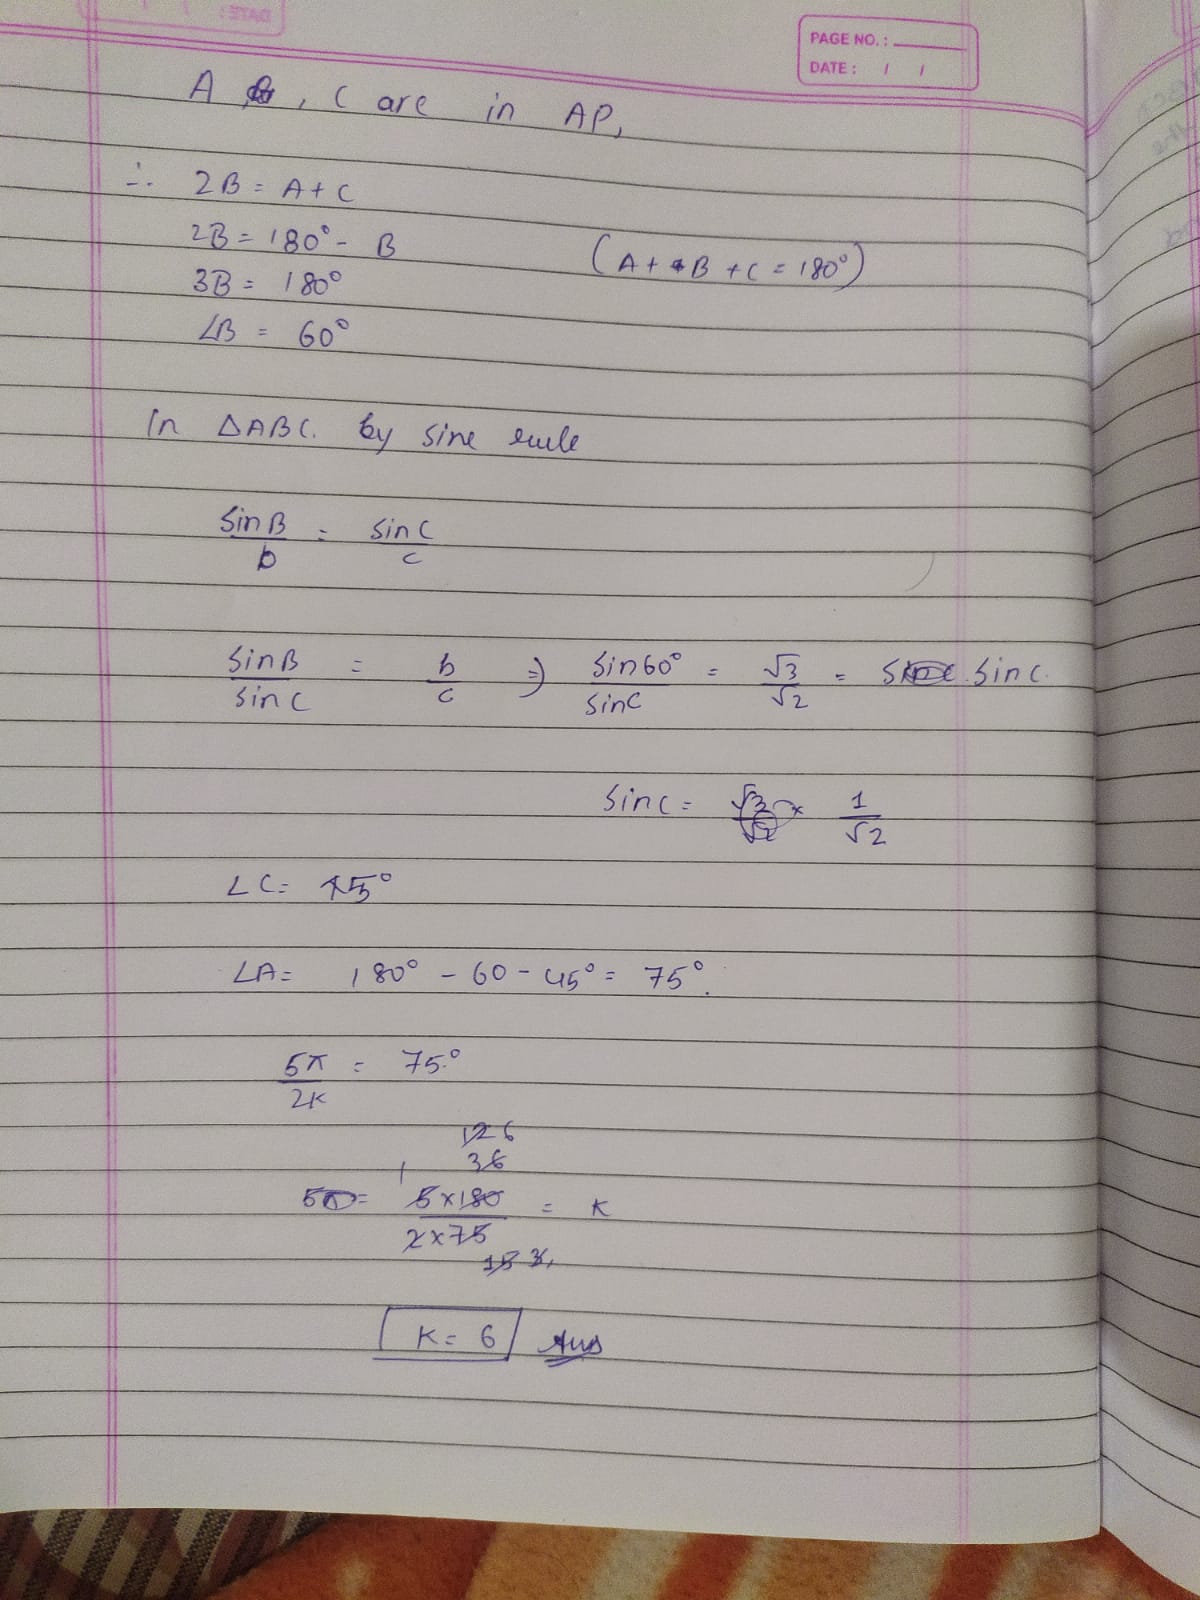 PAGE NO. :
DATE : / /
A, B, C are in AP,
∴ 2B = A + C
2B = 180° - B (A + B + C = 180°)
3B = 180°
∠B = 60°
In △ABC. by sine rule
sin B / b = sin C / c
sin B / sin C = b / c ⇒ sin 60° / sin C = √3 / √2 = sin C.
sin C = √3 / √2 × 1 / √2
∠C = 45°
∠A = 180° - 60 - 45° = 75°.
5π / 2K = 75°
12 6
36
5π = 5 × 180 / 2 × 75 = K
15 3
K = 6 Ans